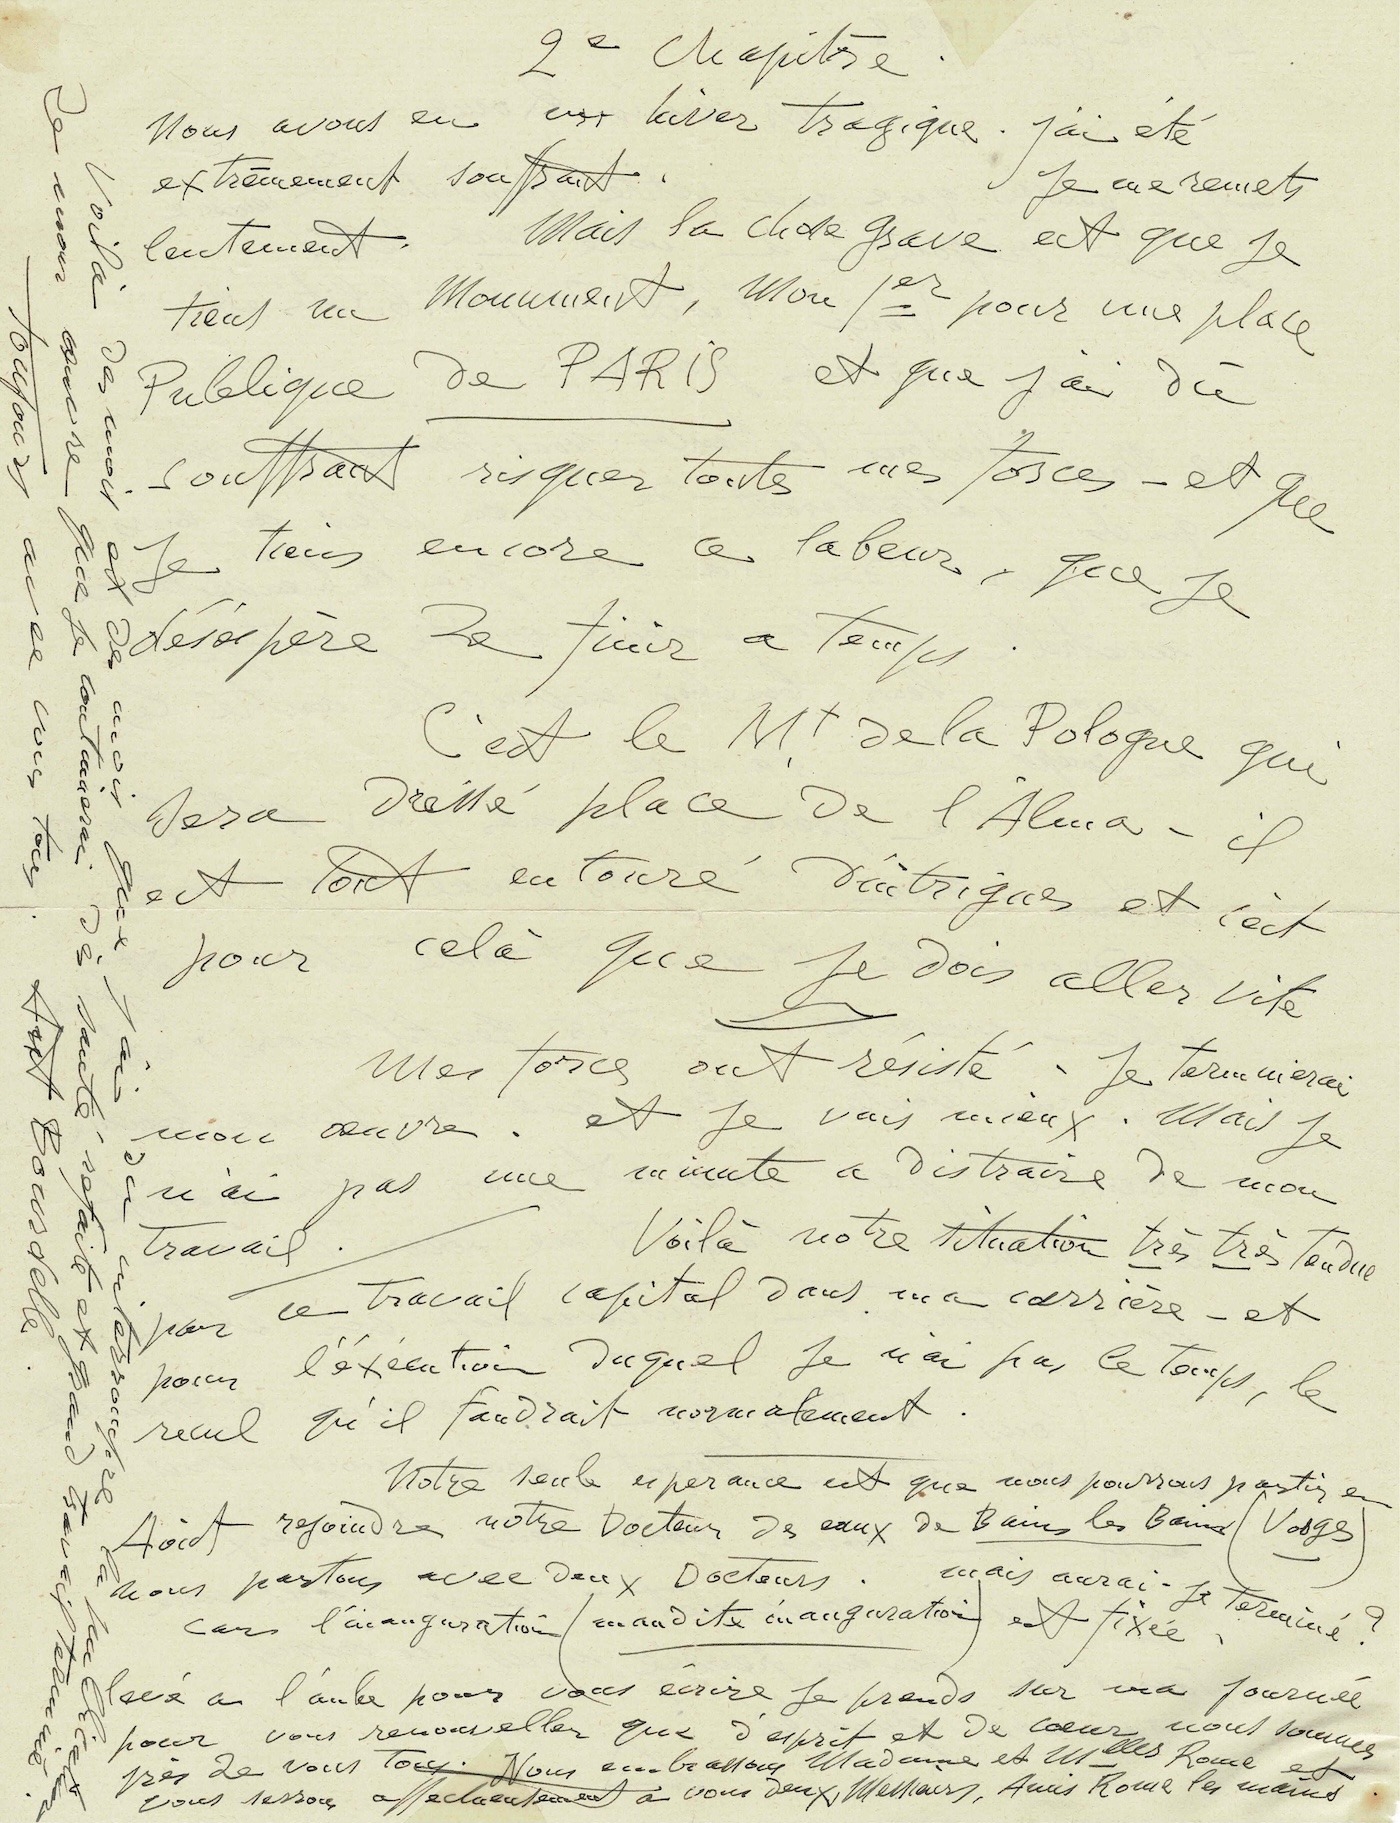 2e Chapitre.
Nous avons eu un hiver tragique. j'ai été
extrêmement souffrant. Je me remets
lentement. Mais la chose grave est que je
tiens un Monument, Mon 1er pour une place
Publique de PARIS et que j'ai dû
souffrant risquer toutes mes forces - et que
Je tiens encore ce labeur, que je
désespère de finir a temps.
C'est le Mt de la Pologne qui
sera dressé place de l'Alma - il
est tout entouré d'intrigues et c'est
pour celà que je dois aller vite
Mes forces ont résisté - Je terminerai
mon œuvre. et je vais mieux. Mais je
n'ai pas une minute a distraire de mon
travail. Voilà notre situation très très tendue
par ce travail capital dans ma carrière - et
pour l'éxécution duquel je n'ai pas le temps, le
recul qu'il faudrait normalement.
Notre seule esperance est que nous pourrons partir en
Août rejoindre notre Docteur des eaux de Bains les Bains (Vosges)
nous partons avec deux Docteurs. mais aurai-je terminé?
car l'inauguration (maudite inauguration) est fixée,
levé a l'aube pour vous écrire je prends sur ma journée
pour vous renouveller que d'esprit et de cœur nous sommes
près de vous tous. Nous embrassons Madame et Melles Rome et
vous serrons affectueusement a vous deux, Messieurs, Amis Rome les mains
Voilà des mois et des mois que j'ai du interrompre la
Je mour que je continuerai. De santé refaite et grand travail terminé.
toujours avec vous tous. Ant Bourdelle.